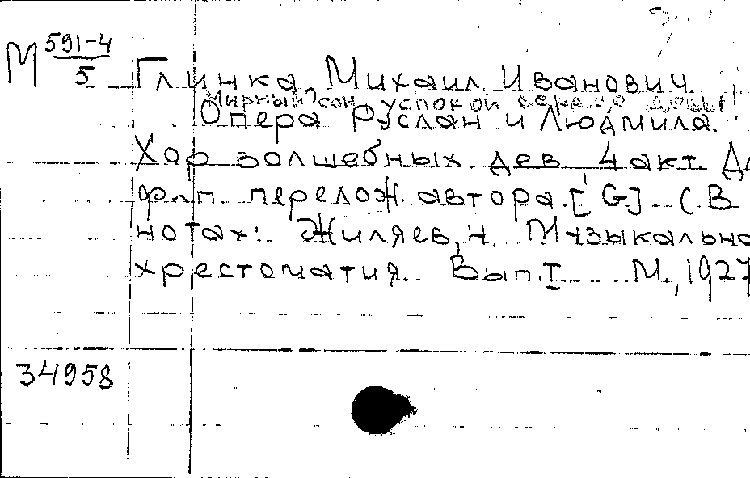 М 591-4/5
Глинка, Михаил Иванович.
Мирный сон, успокой сердце девы!
Опера Руслан и Людмила.
Хор волшебных дев 4 акт Дл
ф.п. перелож. автора. [G] (В
нотах: Жиляев, Н. Музыкально
хрестоматия. Вып. I М., 1927
34958